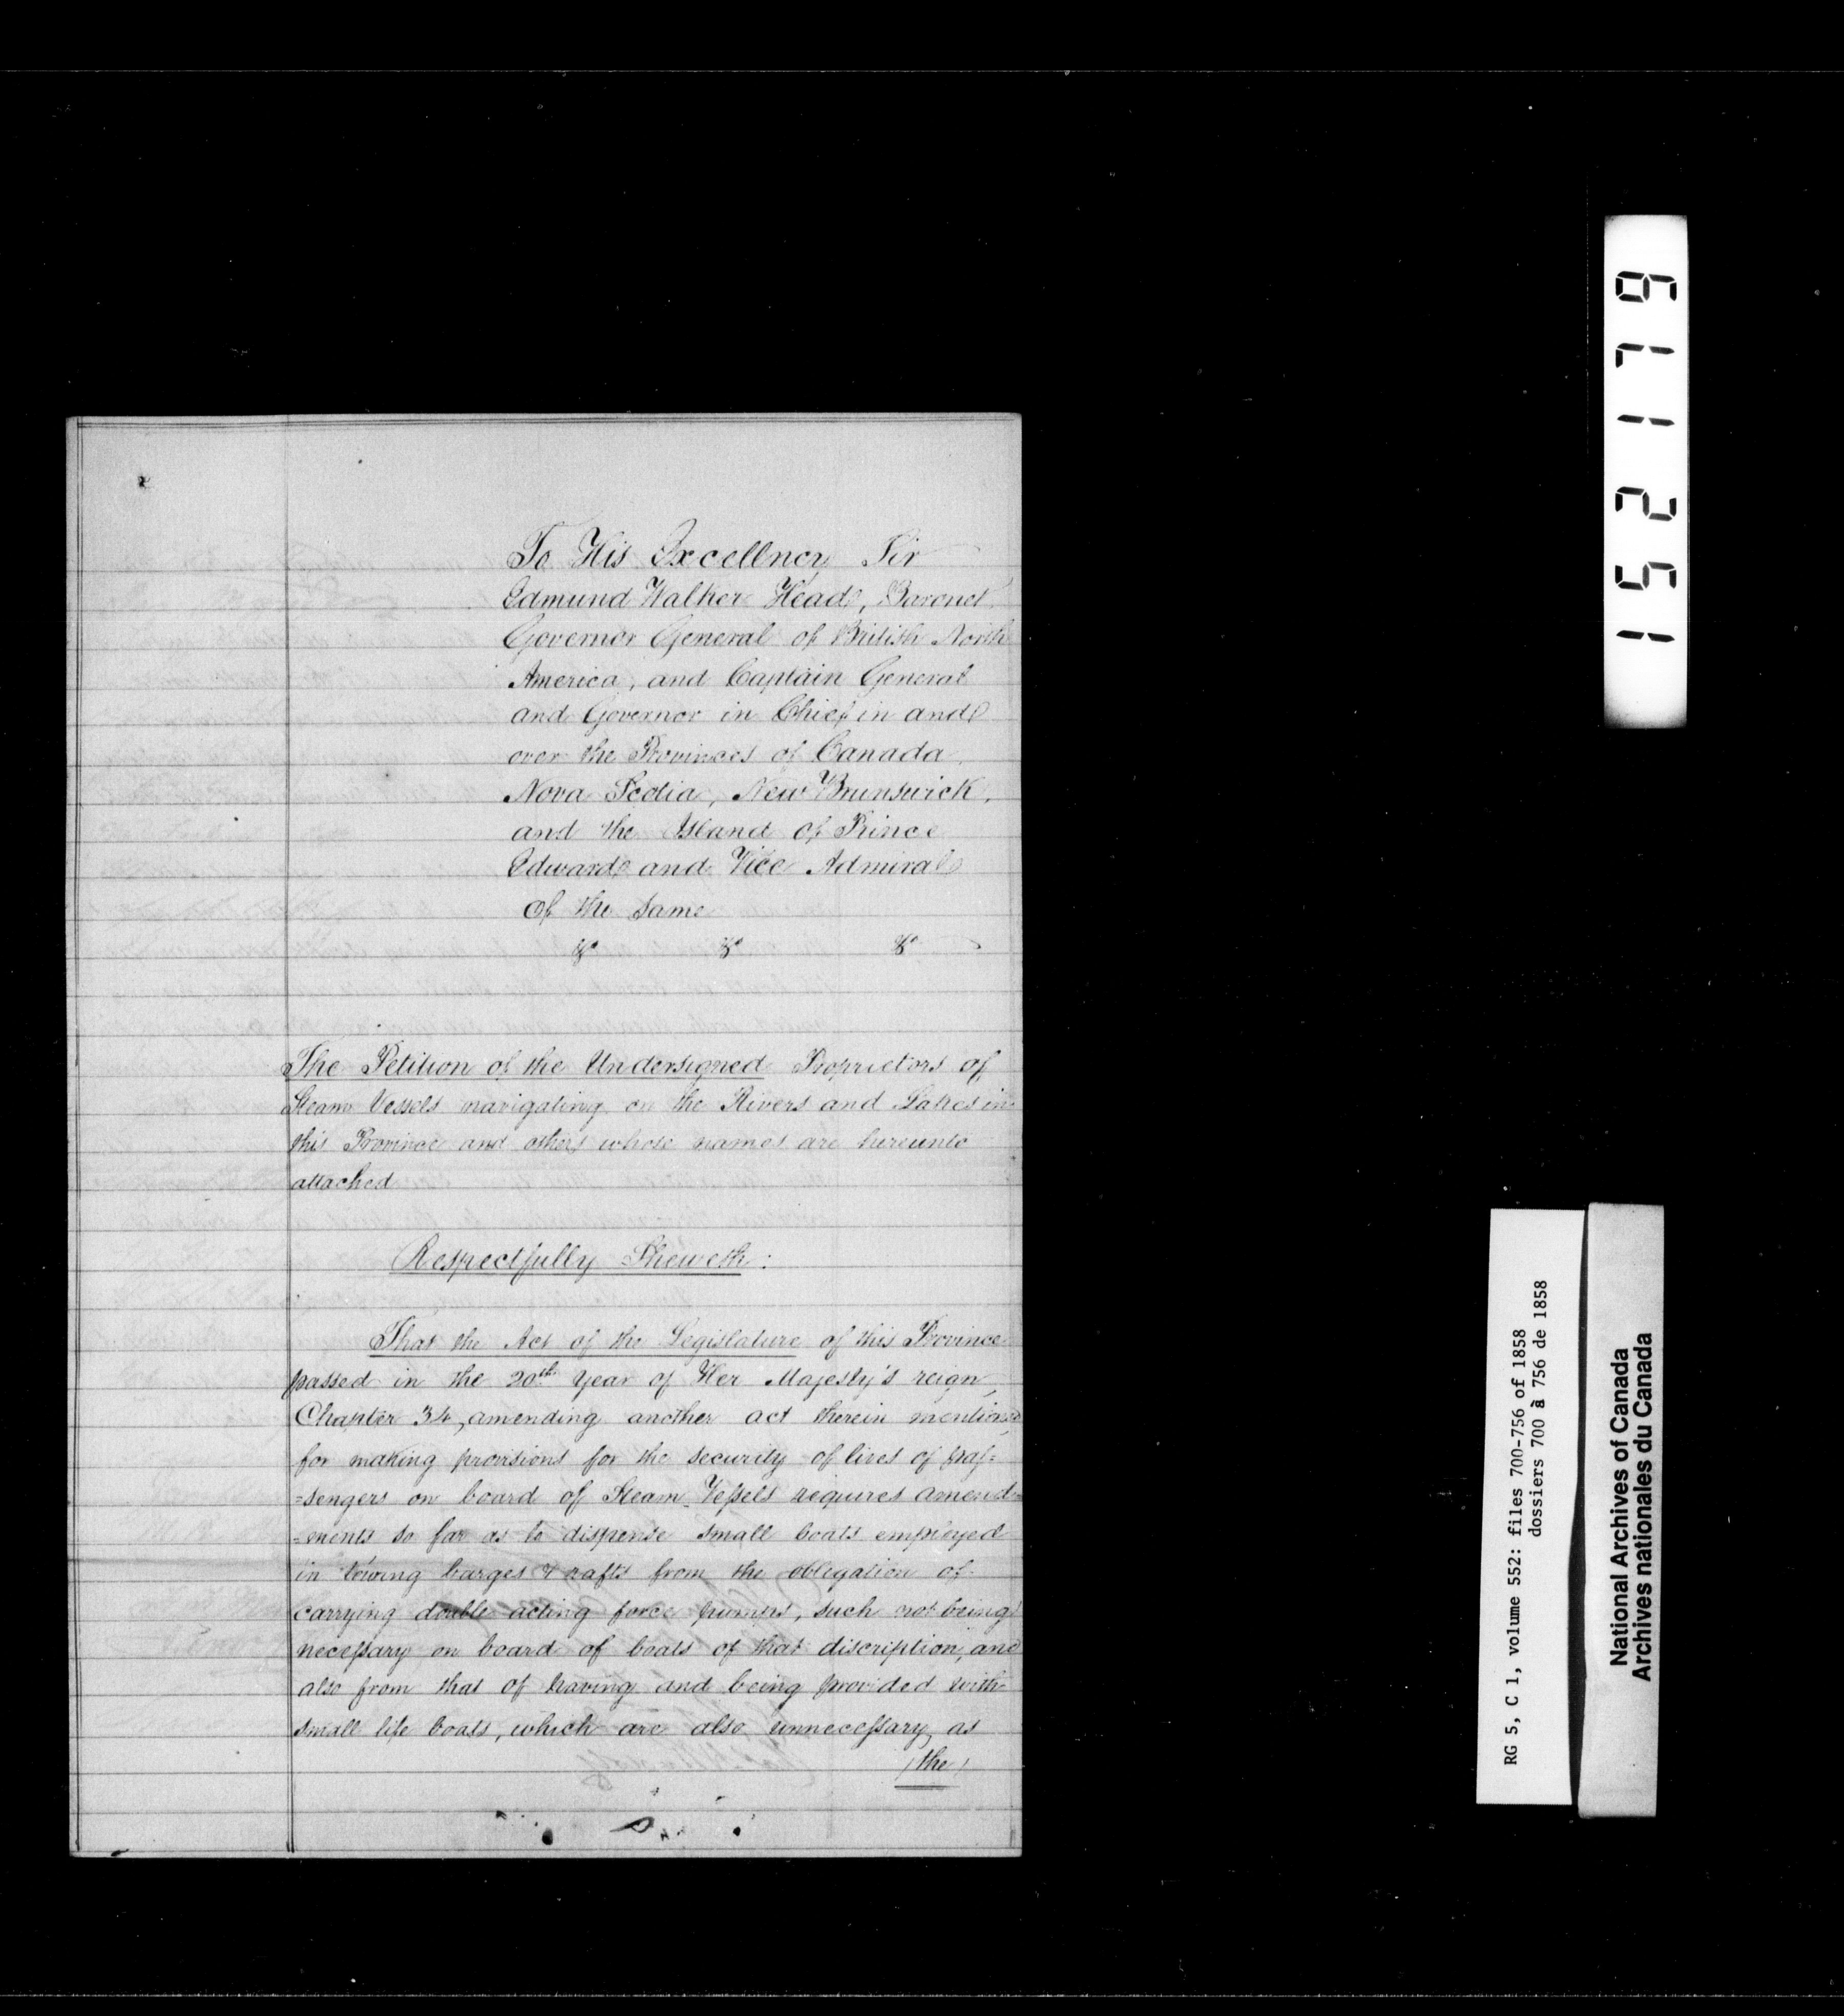 To His Excellncy Sir
Edmund Walker Head, Baronet
Governor General of British North
America, and Captain General
and Governor in Chief in and
over the Provinces of Canada
Nova Scotia, New Brunswick,
and the Island of Prince
Edward and Vice Admiral
Of the same
&c &c &c
The Petition of the Undersigned Proprietors of
Steam Vessels navigating on the Rivers and Lakes in
this Province and others whose names are hereunto
attached
Respectfully Sheweth:
That the Act of the Legislature of this Province
passed in the 20th Year of Her Majesty's reign,
Chapter 34, amending another act therein mentioned
for making provisions for the security of lives of pas=
=sengers on board of Steam Vessels requires amend=
=ments so far as to dispense small boats employed
in towing barges & rafts from the obligation of
carrying double acting force pumps, such not being
necessary on board of boats of that discription, and
also from that of having and being provided with
small life boats, which are also unnecessary, as
/the/
151179
RG 5, C 1, volume 552: files 700-756 of 1858
dossiers 700 à 756 de 1858
National Archives of Canada
Archives nationales du Canada